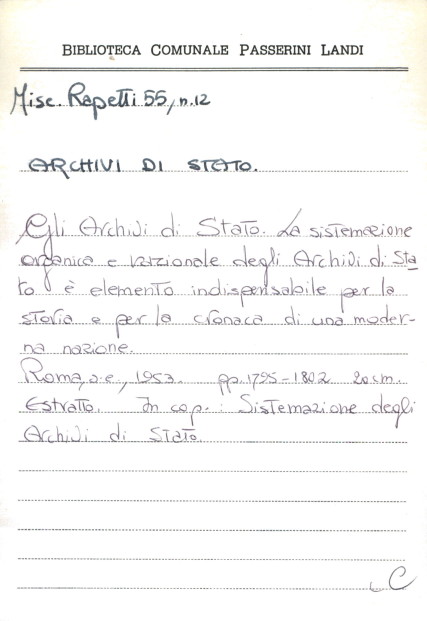 BIBLIOTECA COMUNALE PASSERINI LANDI
Misc. Rapetti 55, n. 12
ARCHIVI DI STATO.
Gli Archivi di Stato. La sistemazione
organica e razionale degli Archivi di Sta
to è elemento indispensabile per la
storia e per la cronaca di una moder-
na nazione.
Roma, s.e., 1953. pp. 1795-1802 20 cm.
Estratto. In cop.: Sistemazione degli
Archivi di Stato.
C